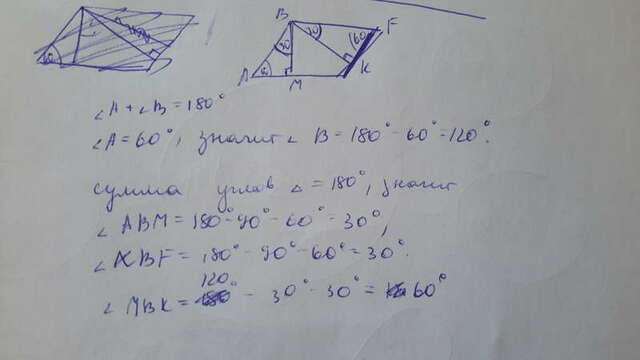 B
F
30
30
60
A
60
M
K
∠A + ∠B = 180°
∠A = 60°, значит ∠ B = 180° - 60° = 120°.
сумма углов △ = 180°, значит
∠ ABM = 180° - 90° - 60° = 30°,
∠ KBF = 180° - 90° - 60° = 30°.
120°
∠ MBK = - 30° - 30° = 60°